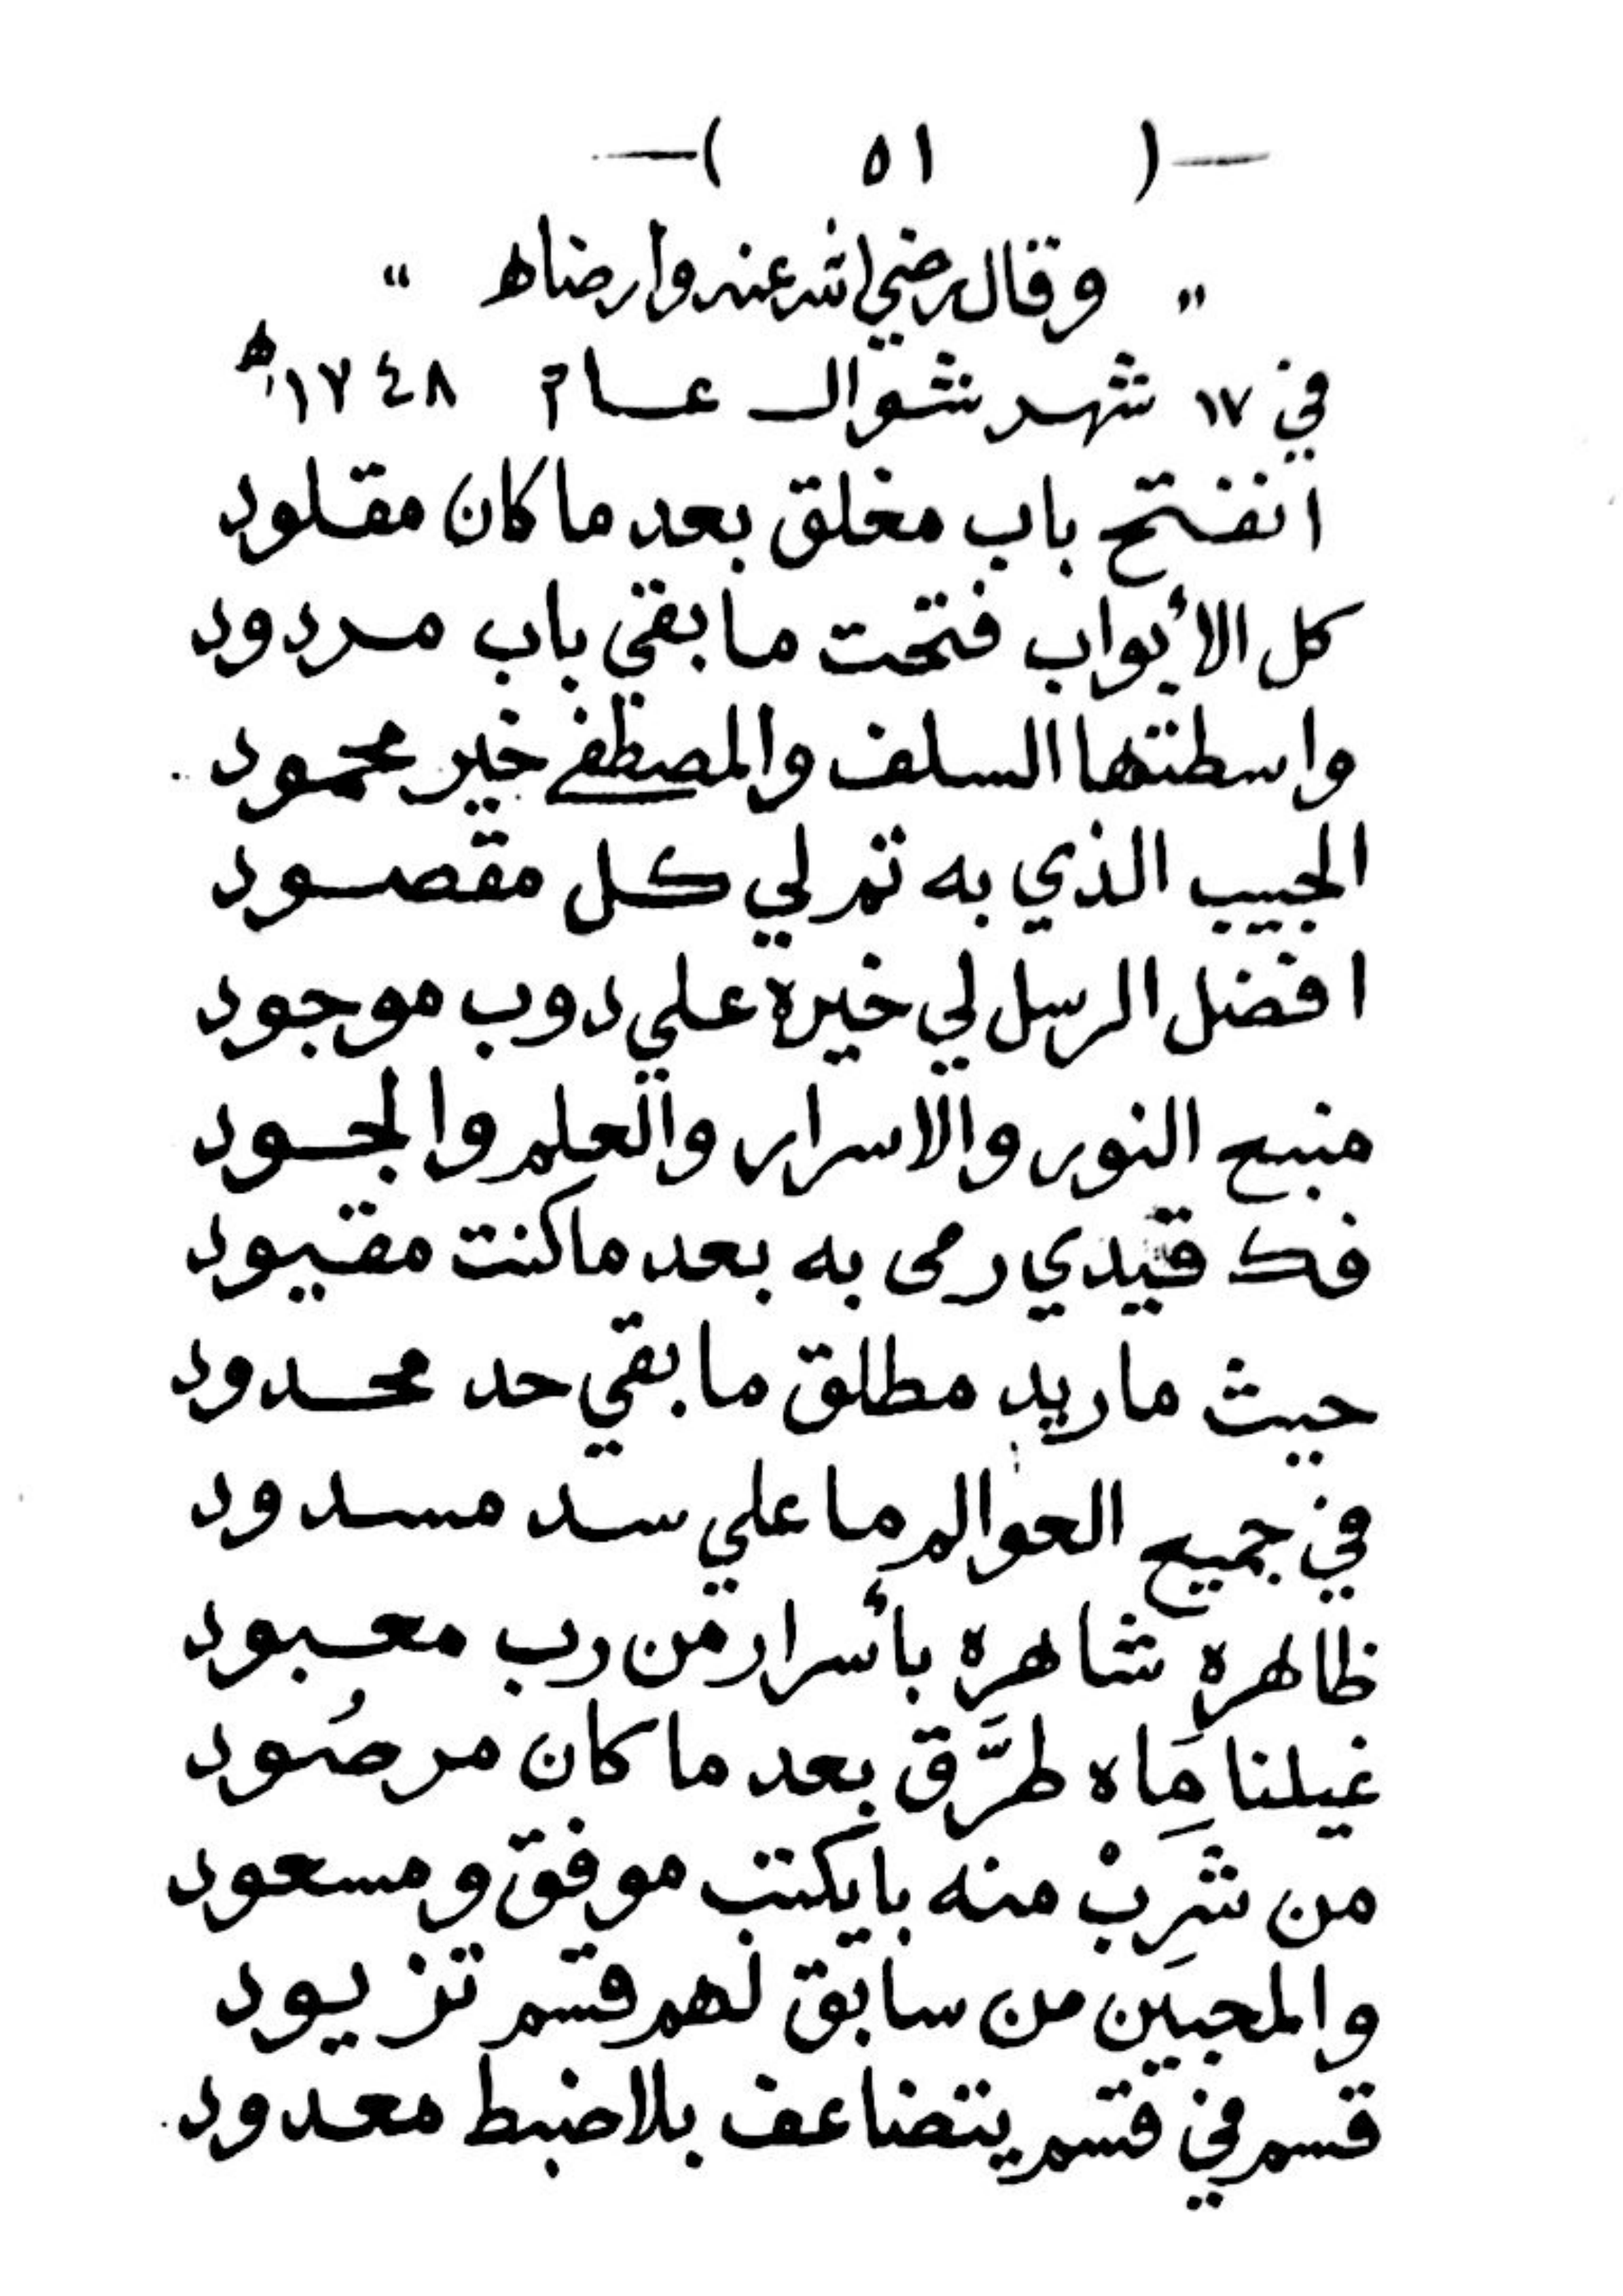 —( ٥١ )—
" وقال رضي الله عنه وارضاه "
في ١٧ شهر شوال عام ١٧٤٨ه
انفتح باب مغلق بعد ما كان مقلود
كل الأبواب فتحت ما بقي باب مردود
واسطتها السلف والمصطفى خير محمود
الحبيب الذي به تم لي كل مقصود
افضل الرسل لي خيره علي دوب موجود
منبع النور والاسرار والعلم والجود
فك قيدي رمى به بعد ما كنت مقيود
حيث ما ريد مطلق ما بقي حد محدود
في جميع العوالم ما علي سد مسدود
ظاهره شاهره بأسرار من رب معبود
غيلنا مَاه طرَّق بعد ما كان مرصُود
من شَرِبْ منه با يكتب موفق و مسعود
والمحبين من سابق لهم قسم تزيود
قسم في قسم يتضاعف بلا ضبط معدود